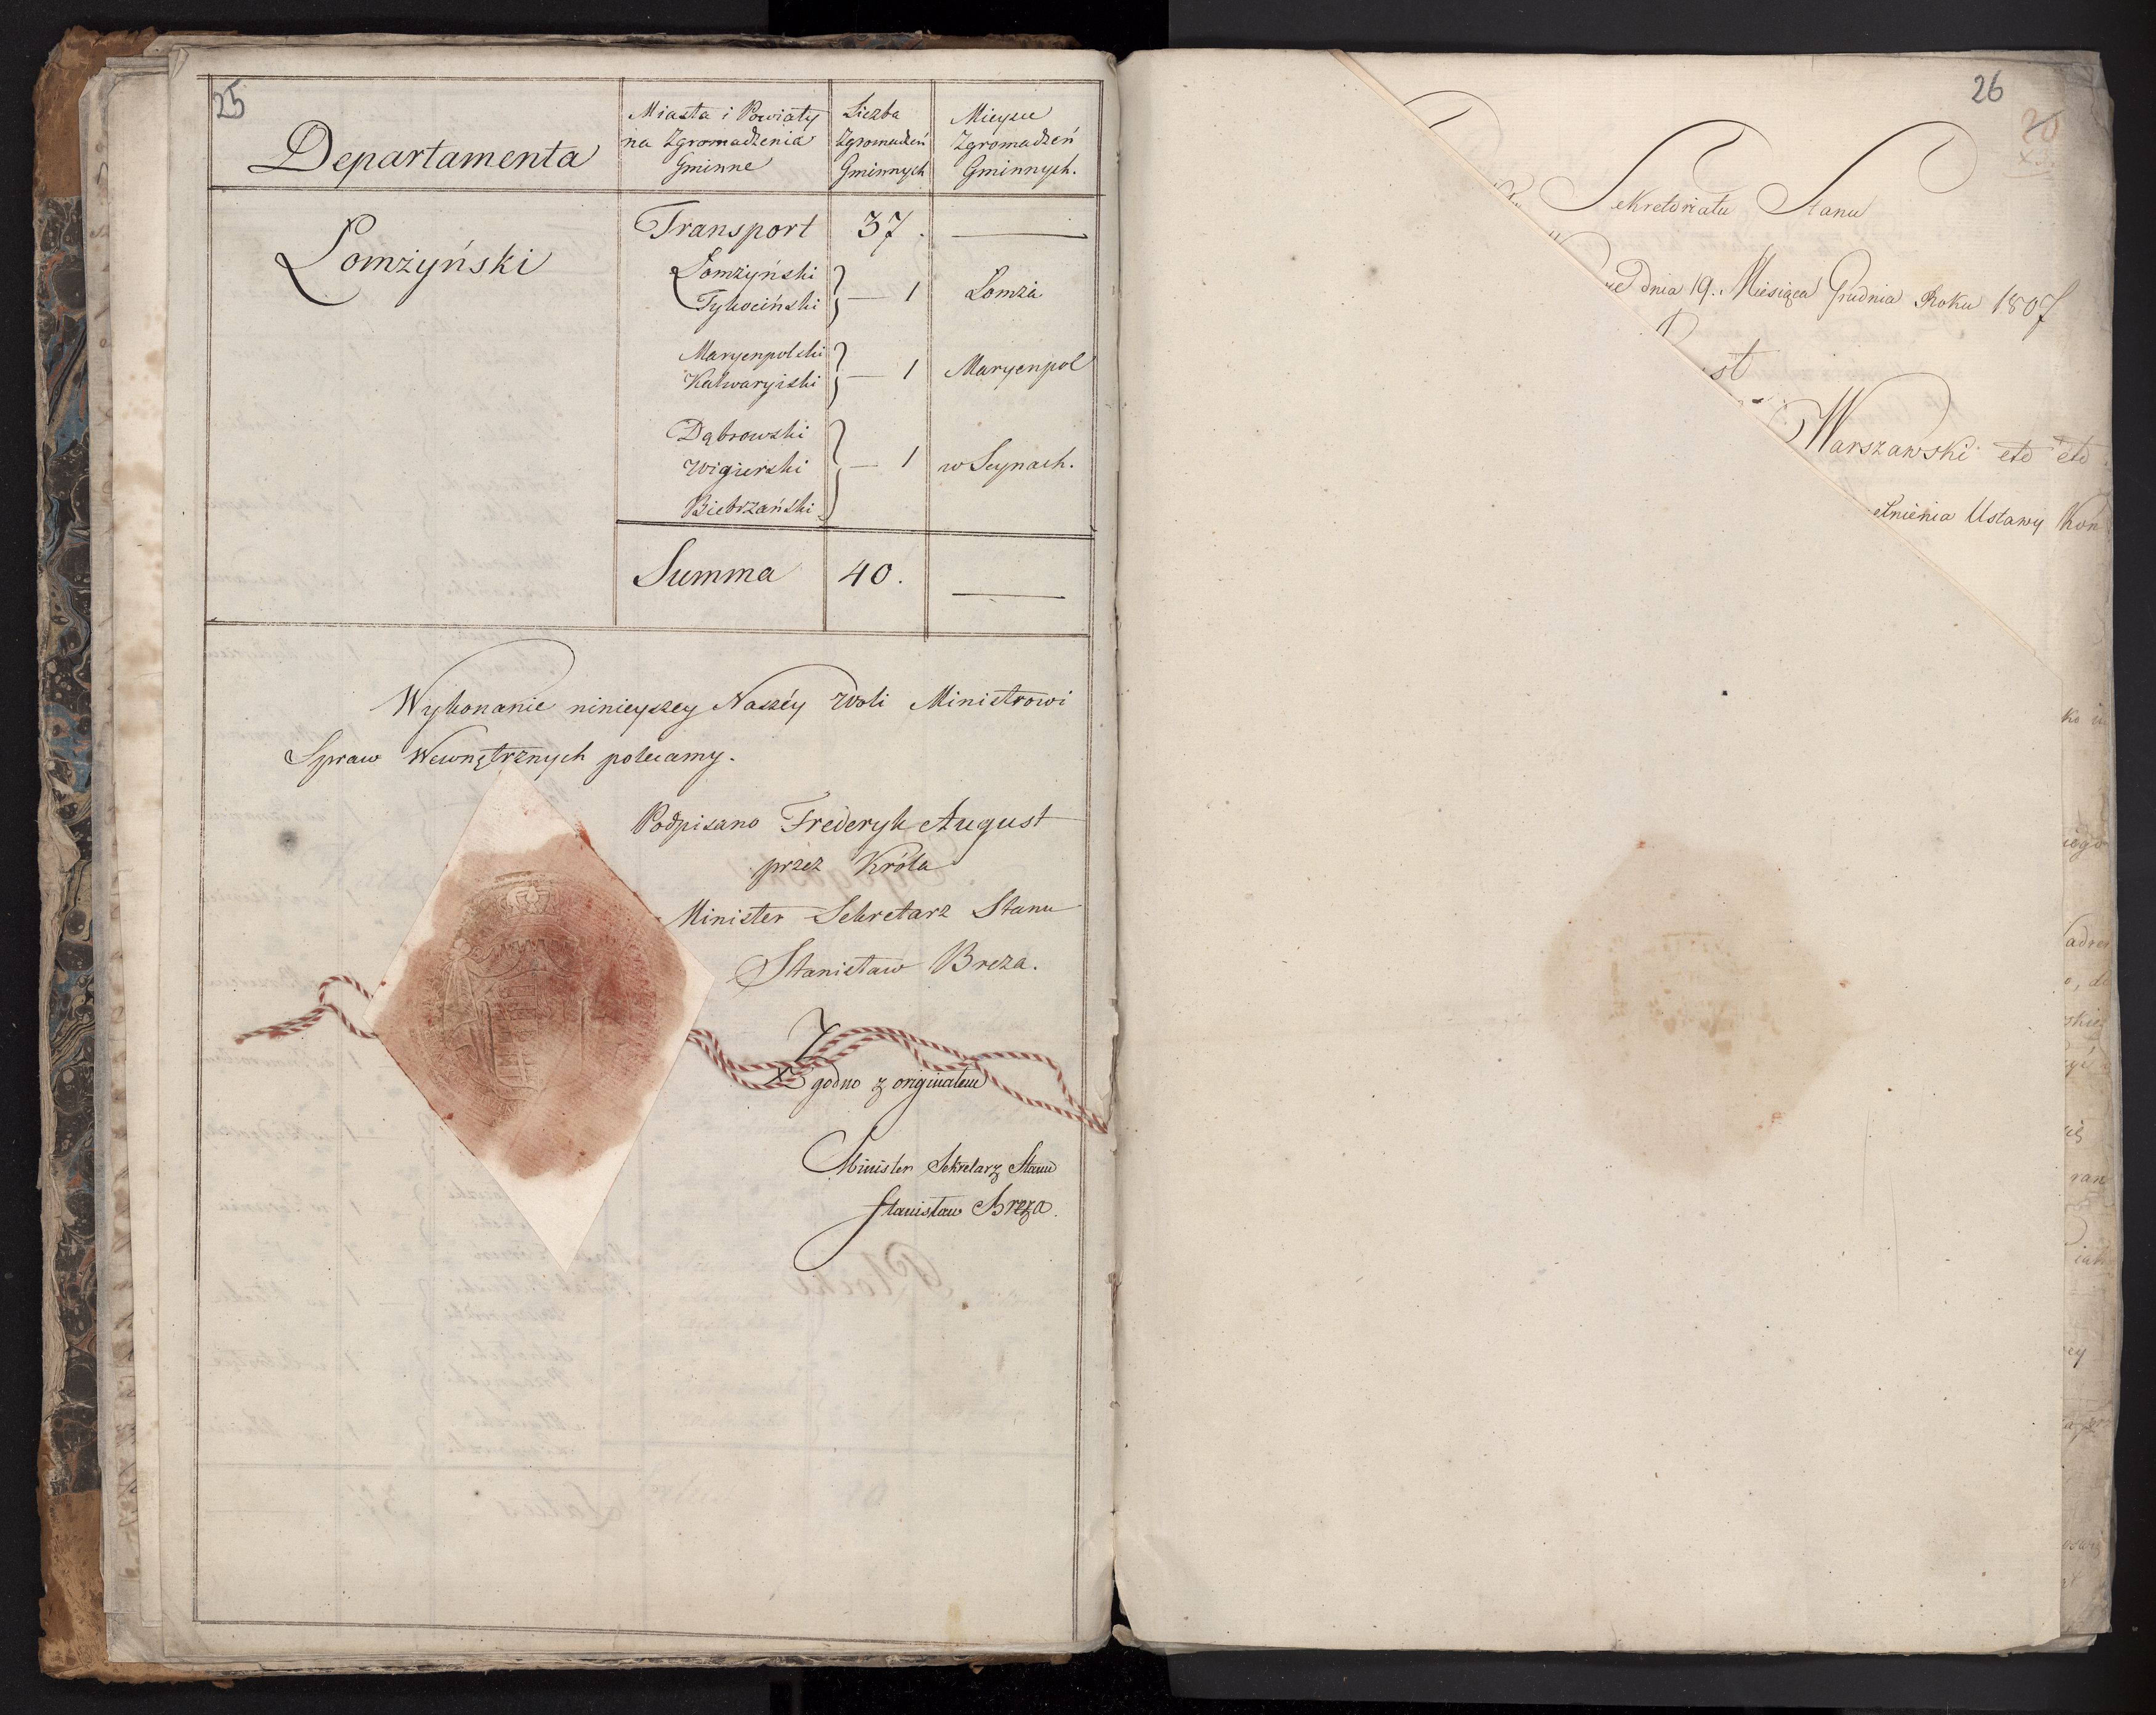 25
Departamenta
Miasta i Powiaty
na Zgromadzenia
Gminne
Liczba
Zgromadzeń
Gminnych
Mieysce
Zgromadzeń
Gminnych.
Łomżyński
Transport 37. —
Łomżyński
Tykociński } — 1 Łomża
Maryenpolski
Kalwaryiski } — 1 Maryenpol
Dąbrowski
Wigierski } — 1 w Seynach.
Biebrzański
Summa 40. —
Wykonanie ninieyszey Naszéy Woli Ministrowi
Spraw Wewnętrznych polecamy.
Podpisano Frederyk August
przez Króla
Minister Sekretarz Stanu
Stanisław Breza.
Zgodno z originałem
Minister Sekretarz Stanu
Stanisław Breza.
26
20
Sekretariatu Stanu
dnia 19. Miesiąca Grudnia Roku 1807
st
Warszawski etc etc
ełnienia Ustawy Kon